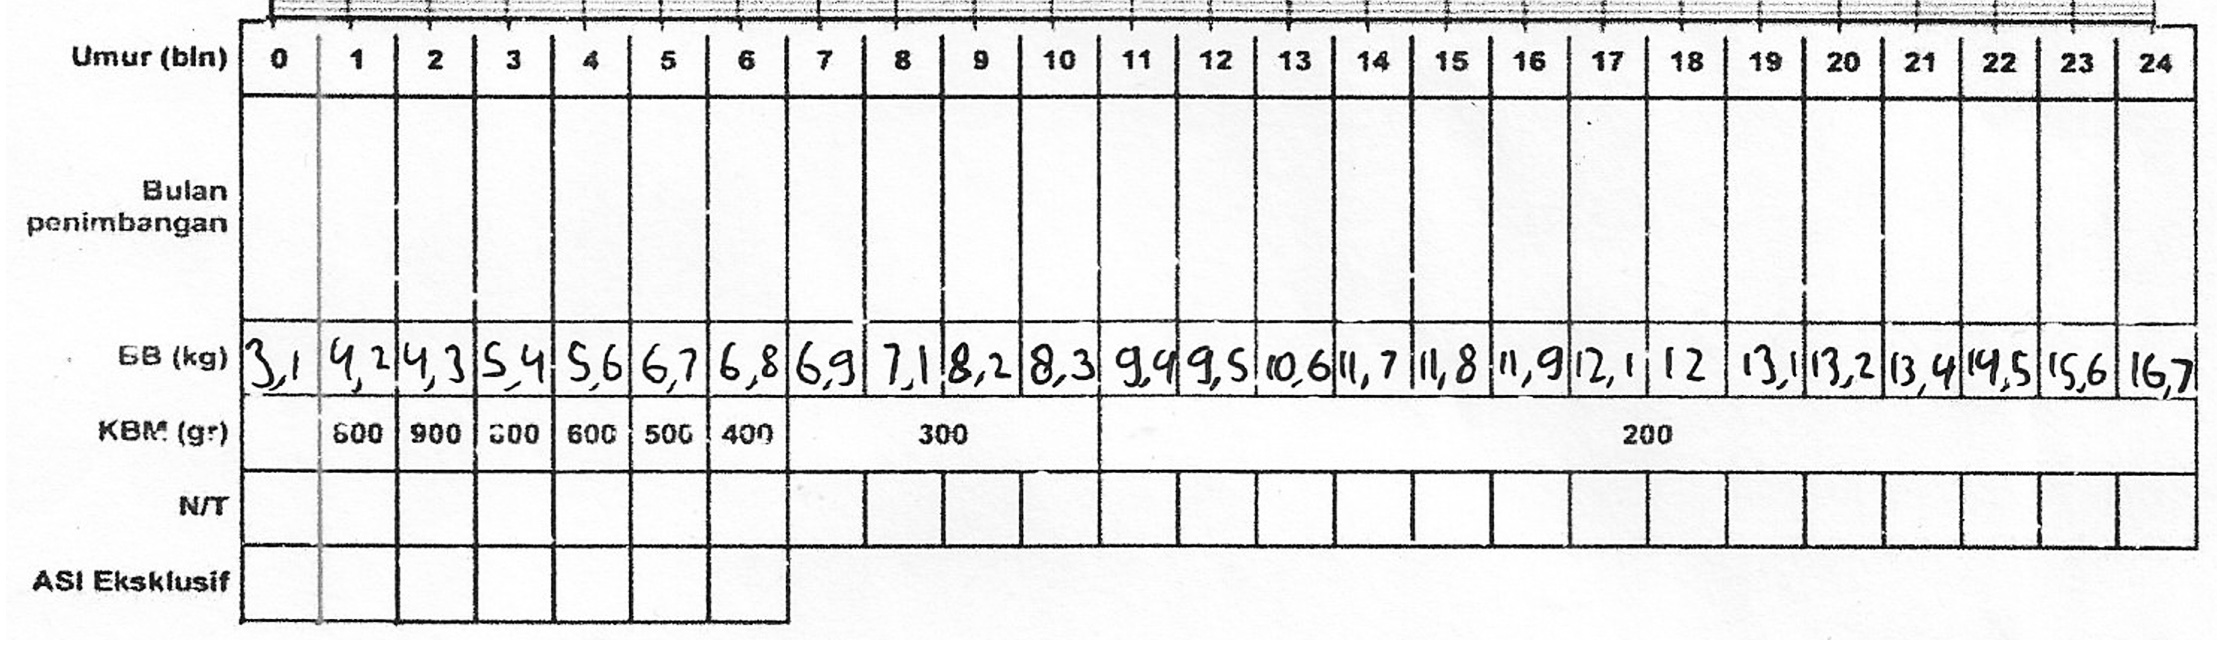 Umur (bln) 0 1 2 3 4 5 6 7 8 9 10 11 12 13 14 15 16 17 18 19 20 21 22 23 24
Bulan
penimbangan
BB (kg) 3,1 4,2 4,3 5,4 5,6 6,7 6,8 6,9 7,1 8,2 8,3 9,4 9,5 10,6 11,7 11,8 11,9 12,1 12 13,1 13,2 13,4 14,5 15,6 16,7
KBM (gr) 900 600 500 400 300 200
N/T
ASI Eksklusif